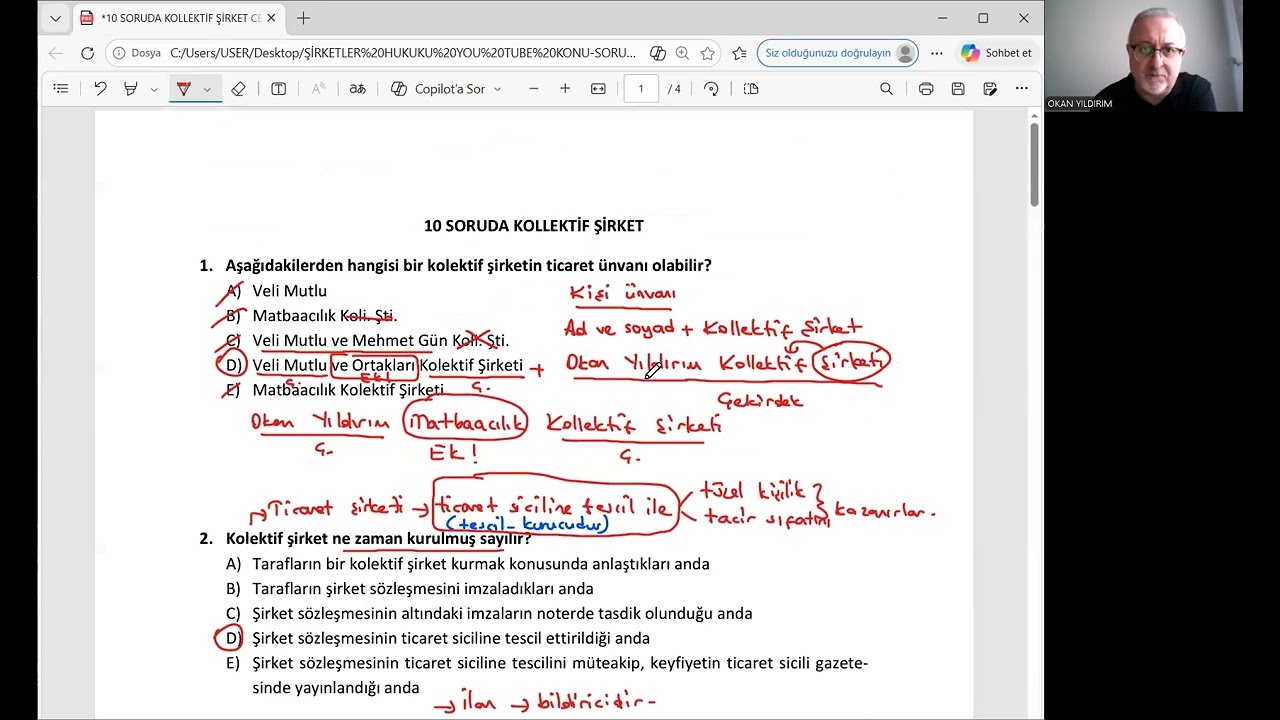 *10 SORUDA KOLLEKTİF ŞİRKET CE
Dosya C:/Users/USER/Desktop/ŞİRKETLER%20HUKUKU%20YOU%20TUBE%20KONU-SORU... Siz olduğunuzu doğrulayın Sohbet et
aあ Copilot'a Sor 1 / 4
OKAN YILDIRIM
10 SORUDA KOLLEKTİF ŞİRKET
1. Aşağıdakilerden hangisi bir kolektif şirketin ticaret ünvanı olabilir?
A) Veli Mutlu
Kişi ünvanı
B) Matbaacılık Koli. Şti.
Ad ve soyad + Kollektif Şirket
C) Veli Mutlu ve Mehmet Gün Koll. Şti.
D) Veli Mutlu ve Ortakları Kolektif Şirketi +
Okan Yıldırım Kollektif Şirketi
Ç. Ek! Ç.
E) Matbaacılık Kolektif Şirketi
Çekirdek
Okan Yıldırım Matbaacılık Kollektif Şirketi
Ç. Ek! Ç.
Ticaret şirketi → ticaret siciline tescil ile
tüzel kişilik
tacir sıfatını
kazanırlar.
(tescil - kurucudur)
2. Kolektif şirket ne zaman kurulmuş sayılır?
A) Tarafların bir kolektif şirket kurmak konusunda anlaştıkları anda
B) Tarafların şirket sözleşmesini imzaladıkları anda
C) Şirket sözleşmesinin altındaki imzaların noterde tasdik olunduğu anda
D) Şirket sözleşmesinin ticaret siciline tescil ettirildiği anda
E) Şirket sözleşmesinin ticaret siciline tescilini müteakip, keyfiyetin ticaret sicili gazete-
sinde yayınlandığı anda
→ ilan → bildiricidir -